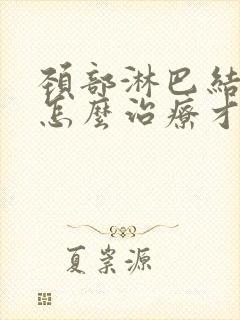 頚部淋巴結
怎麼治療才
夏崇源